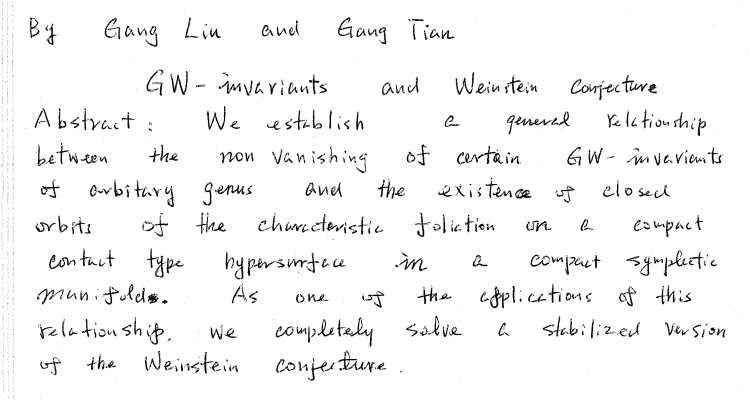 By Gang Liu and Gang Tian
GW-invariants and Weinstein Conjecture
Abstract: We establish a general relationship
between the non vanishing of certain GW-invariants
of arbitary genus and the existence of closed
orbits of the characteristic foliation on a compact
contact type hypersurface in a compact symplectic
manifolds. As one of the applications of this
relationship, we completely solve a stabilized version
of the Weinstein conjecture.